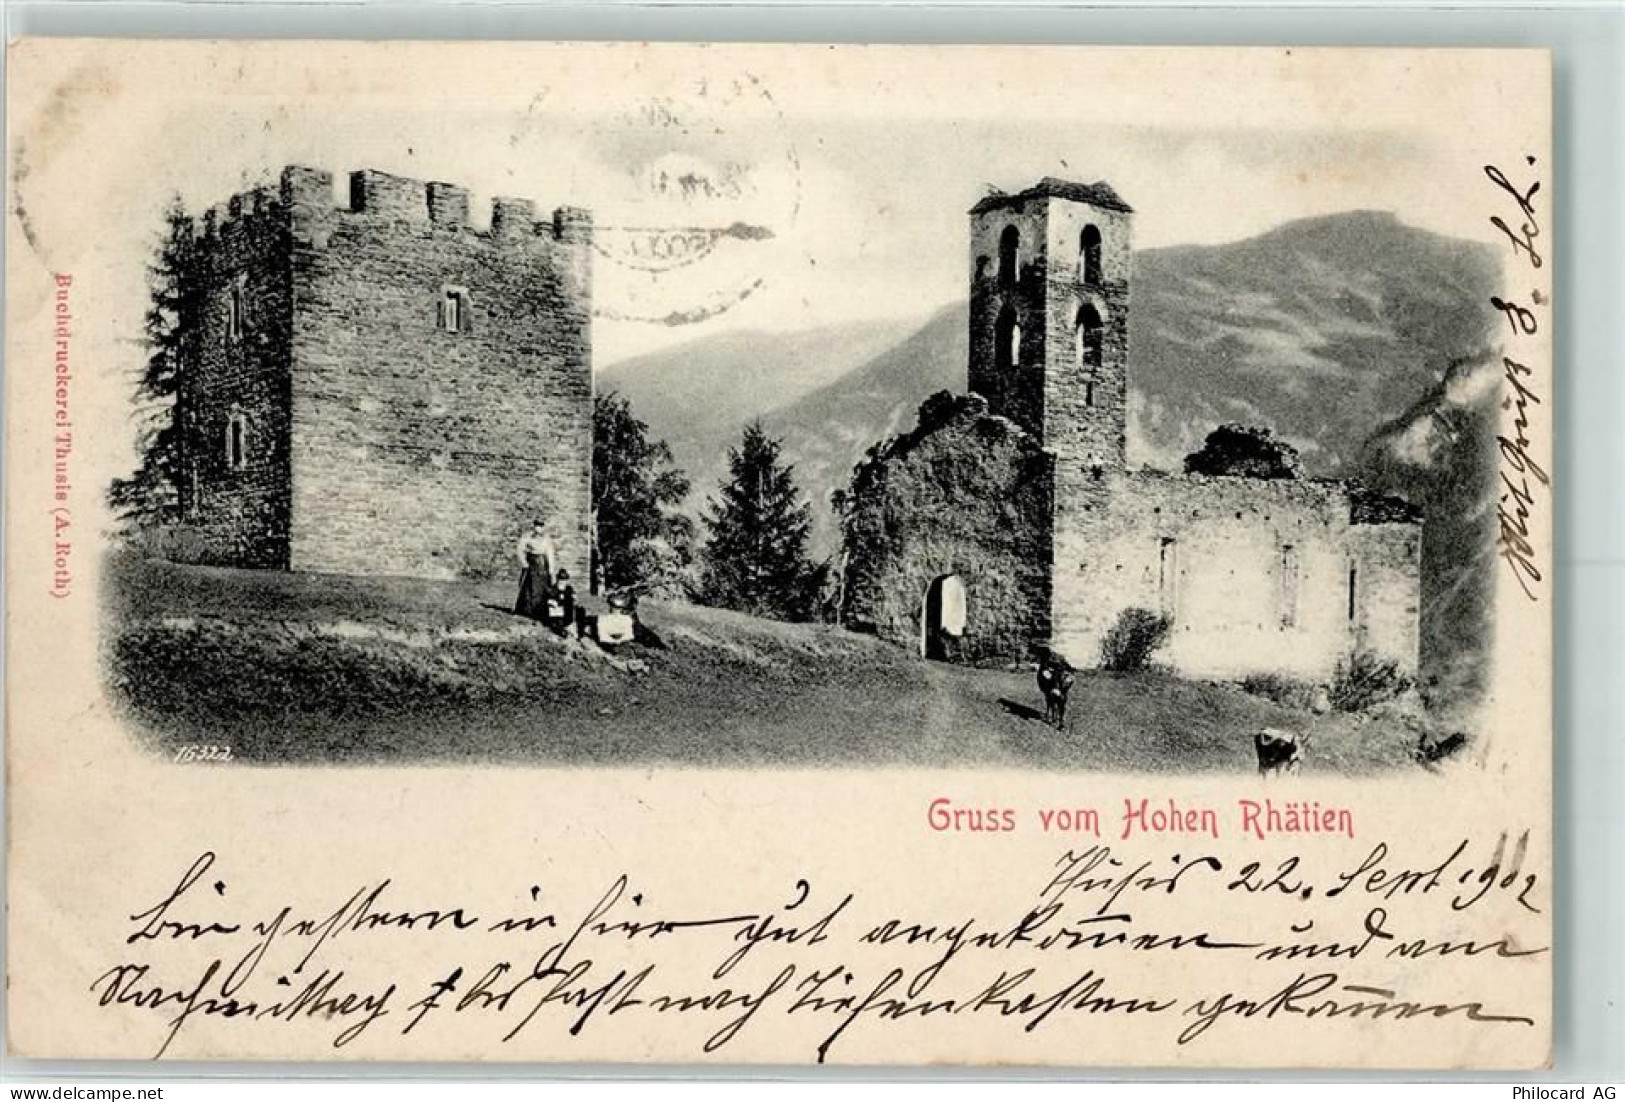 Gruss vom Hohen Rhätien
Thusis 22. Sept. 1902
Bin gestern in hier gut angekommen und am
Nachmittag bis fast nach Tiefenkasten gekommen
Mit Gruß
Buchdruckerei Thusis (A. Roth)
16322
Philocard AG